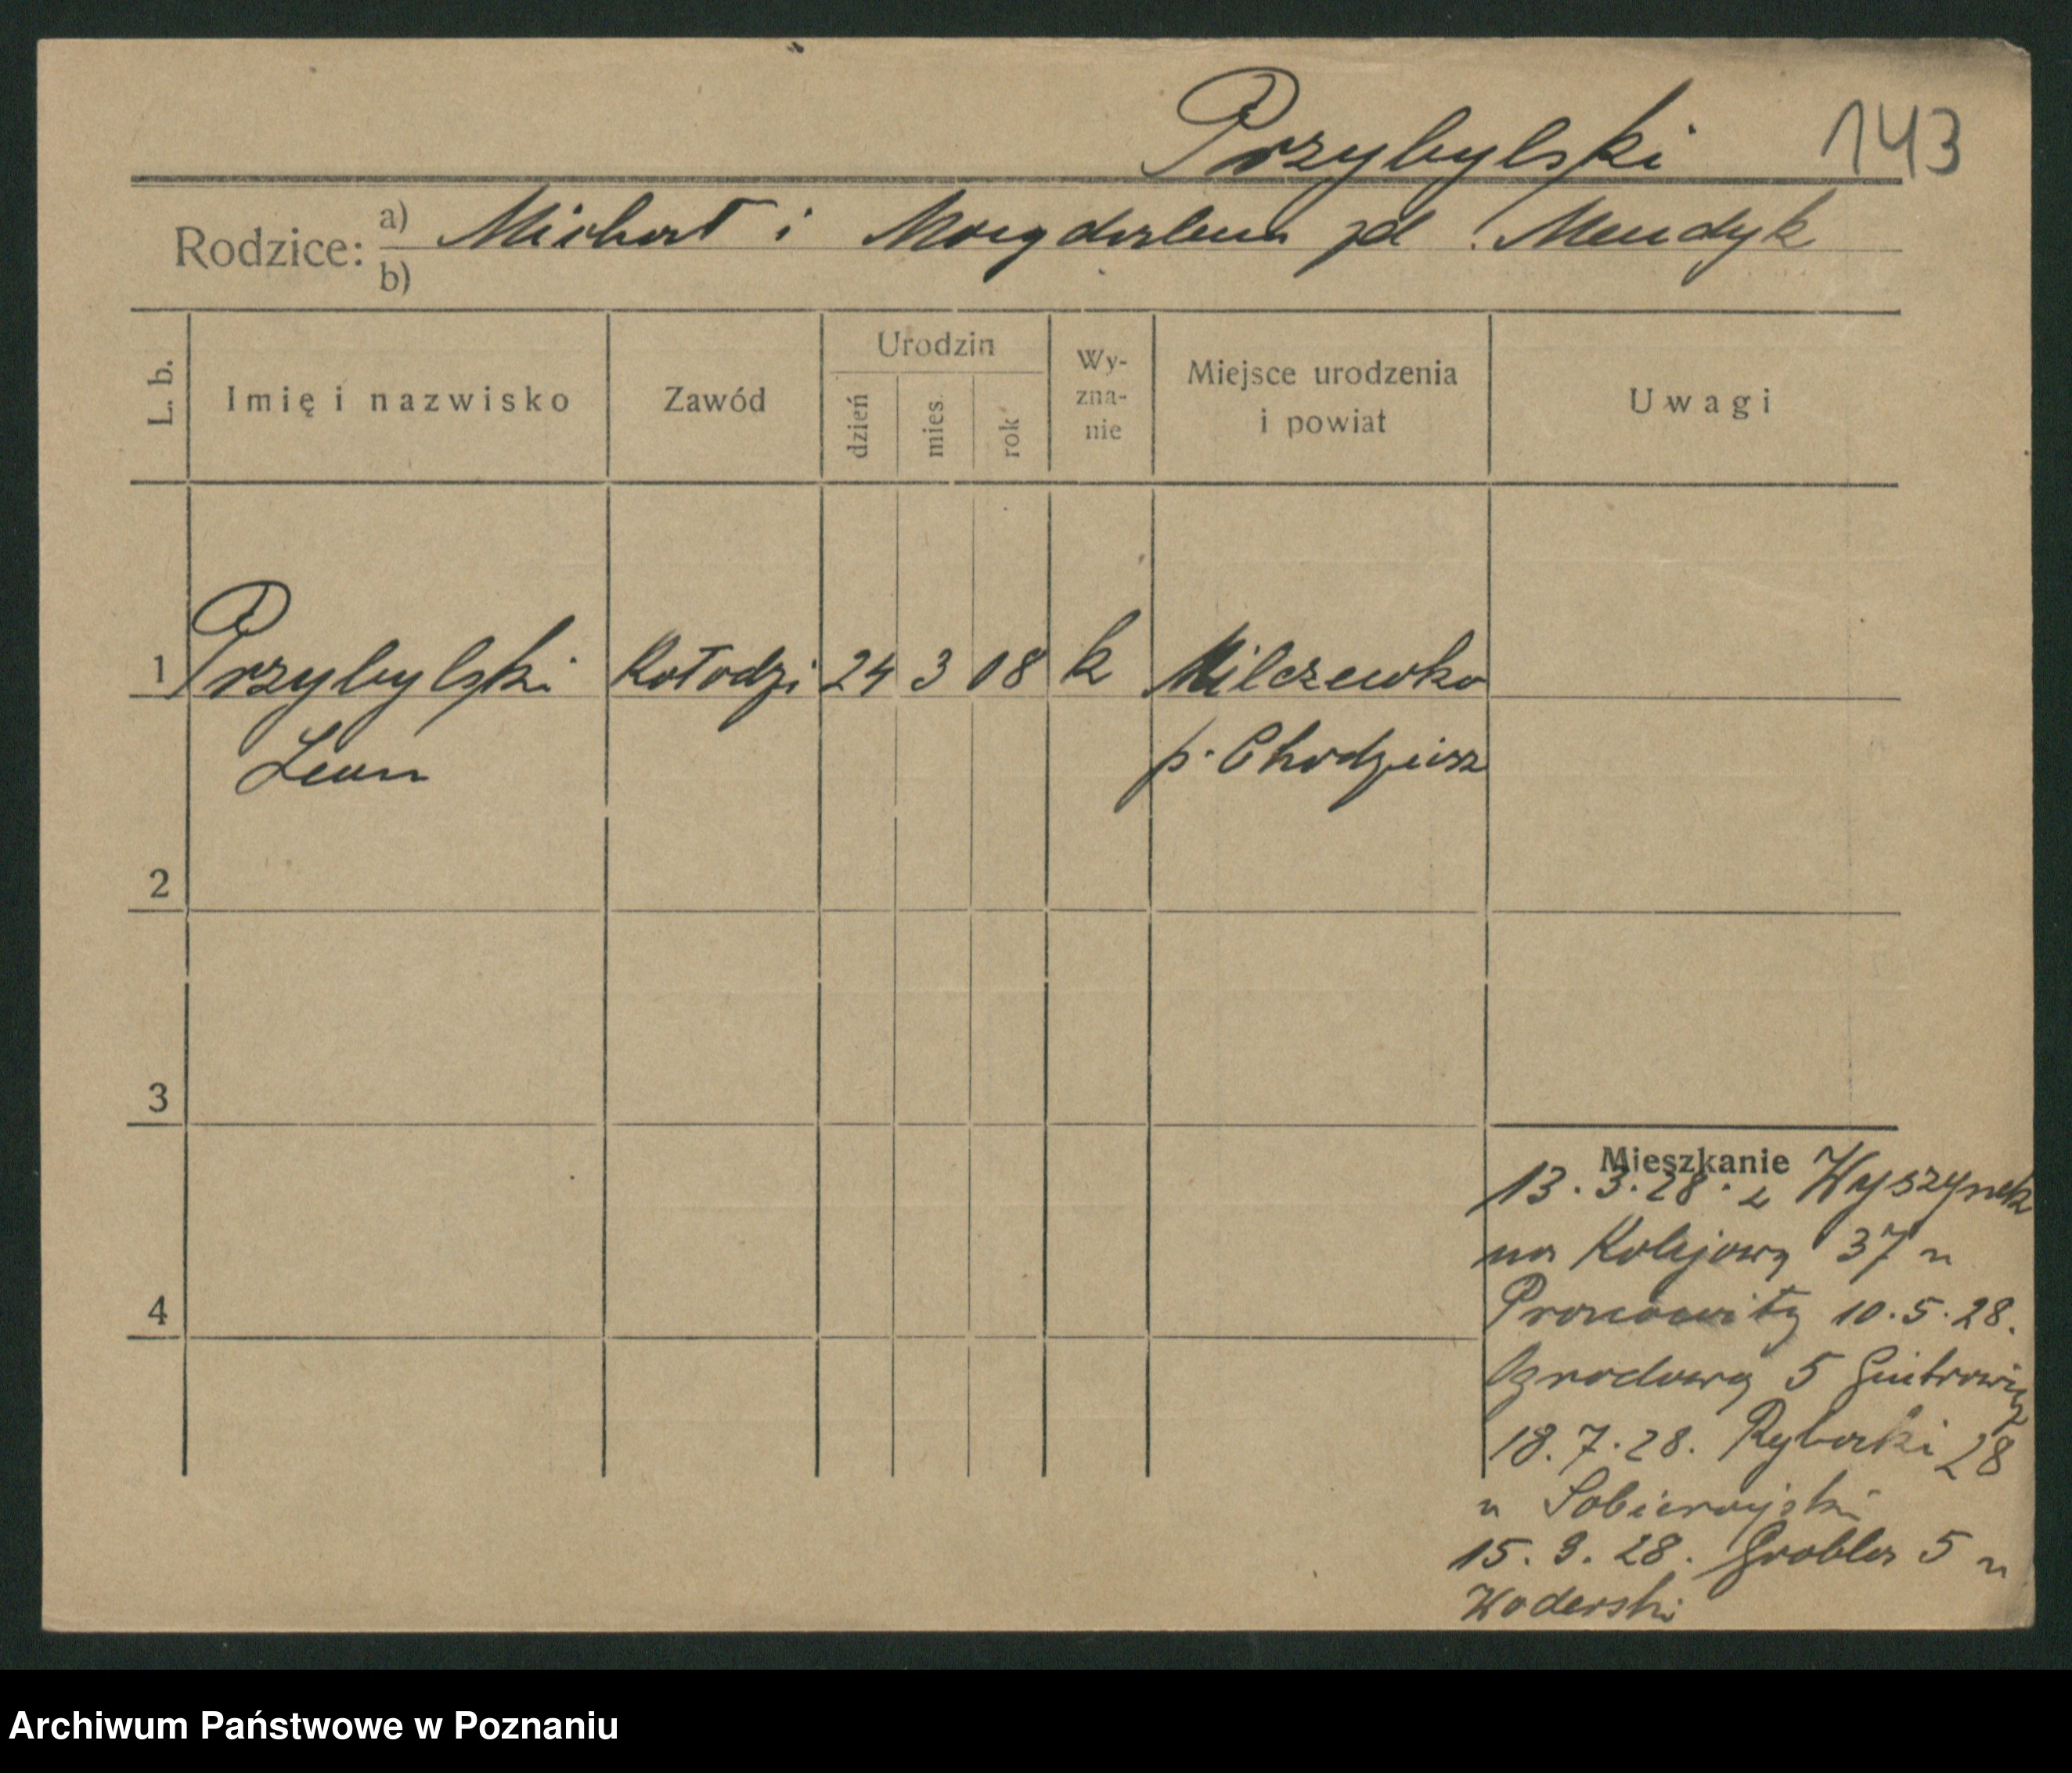 Przybylski 143
Rodzice: a) Michał i Magdalena zd. Mendyk
b)
L. b. Imię i nazwisko Zawód Urodzin dzień mies. rok Wy-zna-nie Miejsce urodzenia i powiat Uwagi
1 Przybylski Kołodzi 24 3 08 k Milczewko
Leon p. Chodzież
2
3
4
Mieszkanie
13.3.28. z Wyszynek
na Kolejową 37 u
10.5.28.
Ogrodową 5
18.7.28. Rybaki 28
u Sobierajski
15.9.28. Grobla 5 u
Woderski
Archiwum Państwowe w Poznaniu